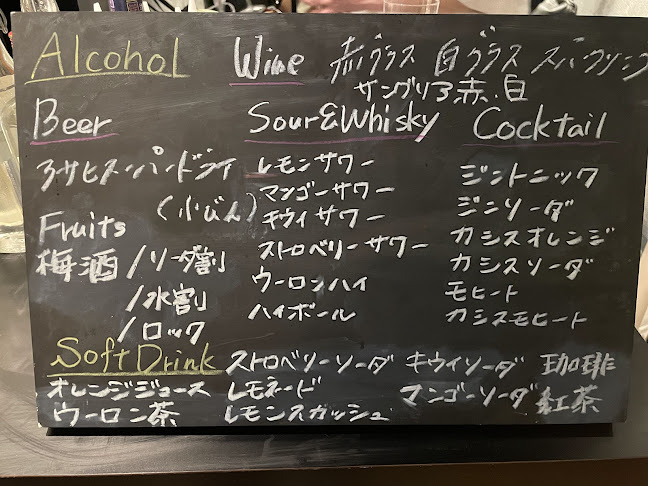 Alcohol
Wine 赤グラス 白グラス スパークリング
サングリア赤.白
Beer
アサヒスーパードライ
(小びん)
Fruits
梅酒/ソーダ割
/水割
/ロック
Sour&Whisky
レモンサワー
マンゴーサワー
キウイサワー
ストロベリーサワー
ウーロンハイ
ハイボール
Cocktail
ジントニック
ジンソーダ
カシスオレンジ
カシスソーダ
モヒート
カシスモヒート
Soft Drink ストロベリーソーダ キウイソーダ 珈琲
オレンジジュース レモネード マンゴーソーダ 紅茶
ウーロン茶 レモンスカッシュ